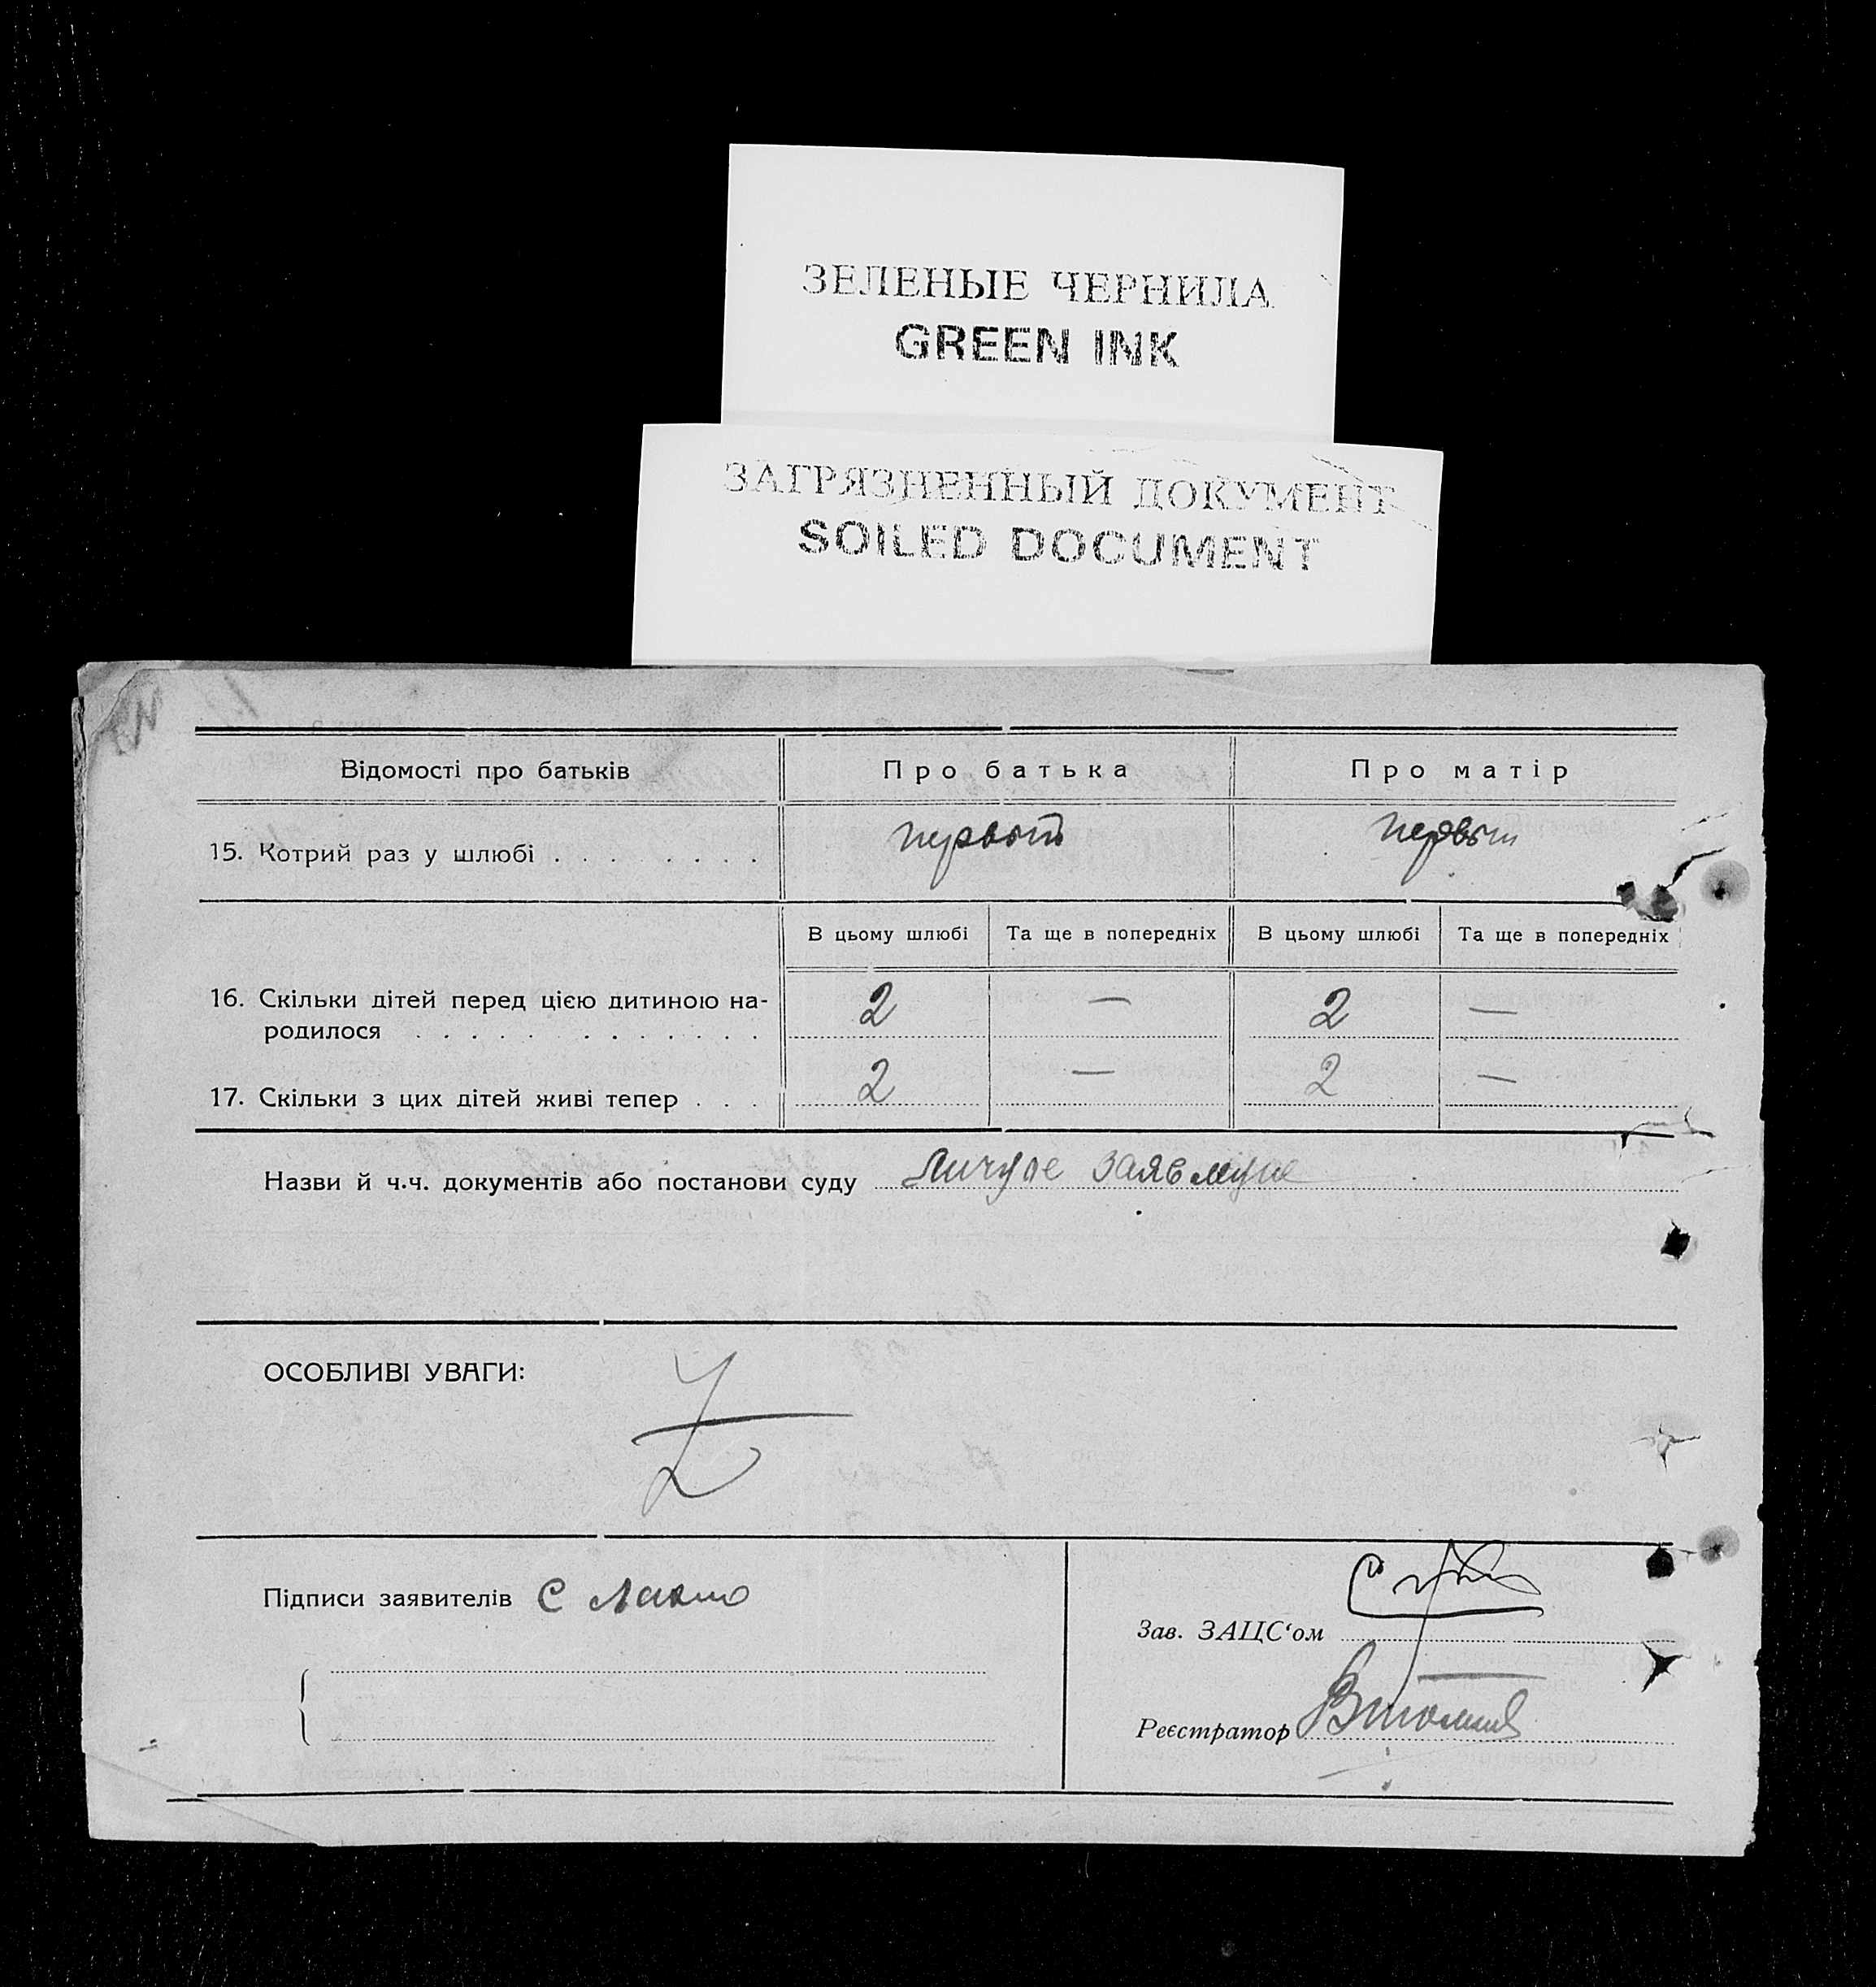 ЗЕЛЕНЫЕ ЧЕРНИЛА
GREEN INK
ЗАГРЯЗНЕННЫЙ ДОКУМЕНТ
SOILED DOCUMENT
Відомості про батьків Про батька Про матір
15. Котрий раз у шлюбі . . . . . . . . первый первый
В цьому шлюбі Та ще в попередніх В цьому шлюбі Та ще в попередніх
16. Скільки дітей перед цією дитиною на- 2 — 2 —
родилося . . . . . . . . . . . . .
17. Скільки з цих дітей живі тепер . . . 2 — 2 —
Назви й ч.ч. документів або постанови суду
ОСОБЛИВІ УВАГИ:
Підписи заявителів С
Зав. ЗАЦС‘ом
Реєстратор